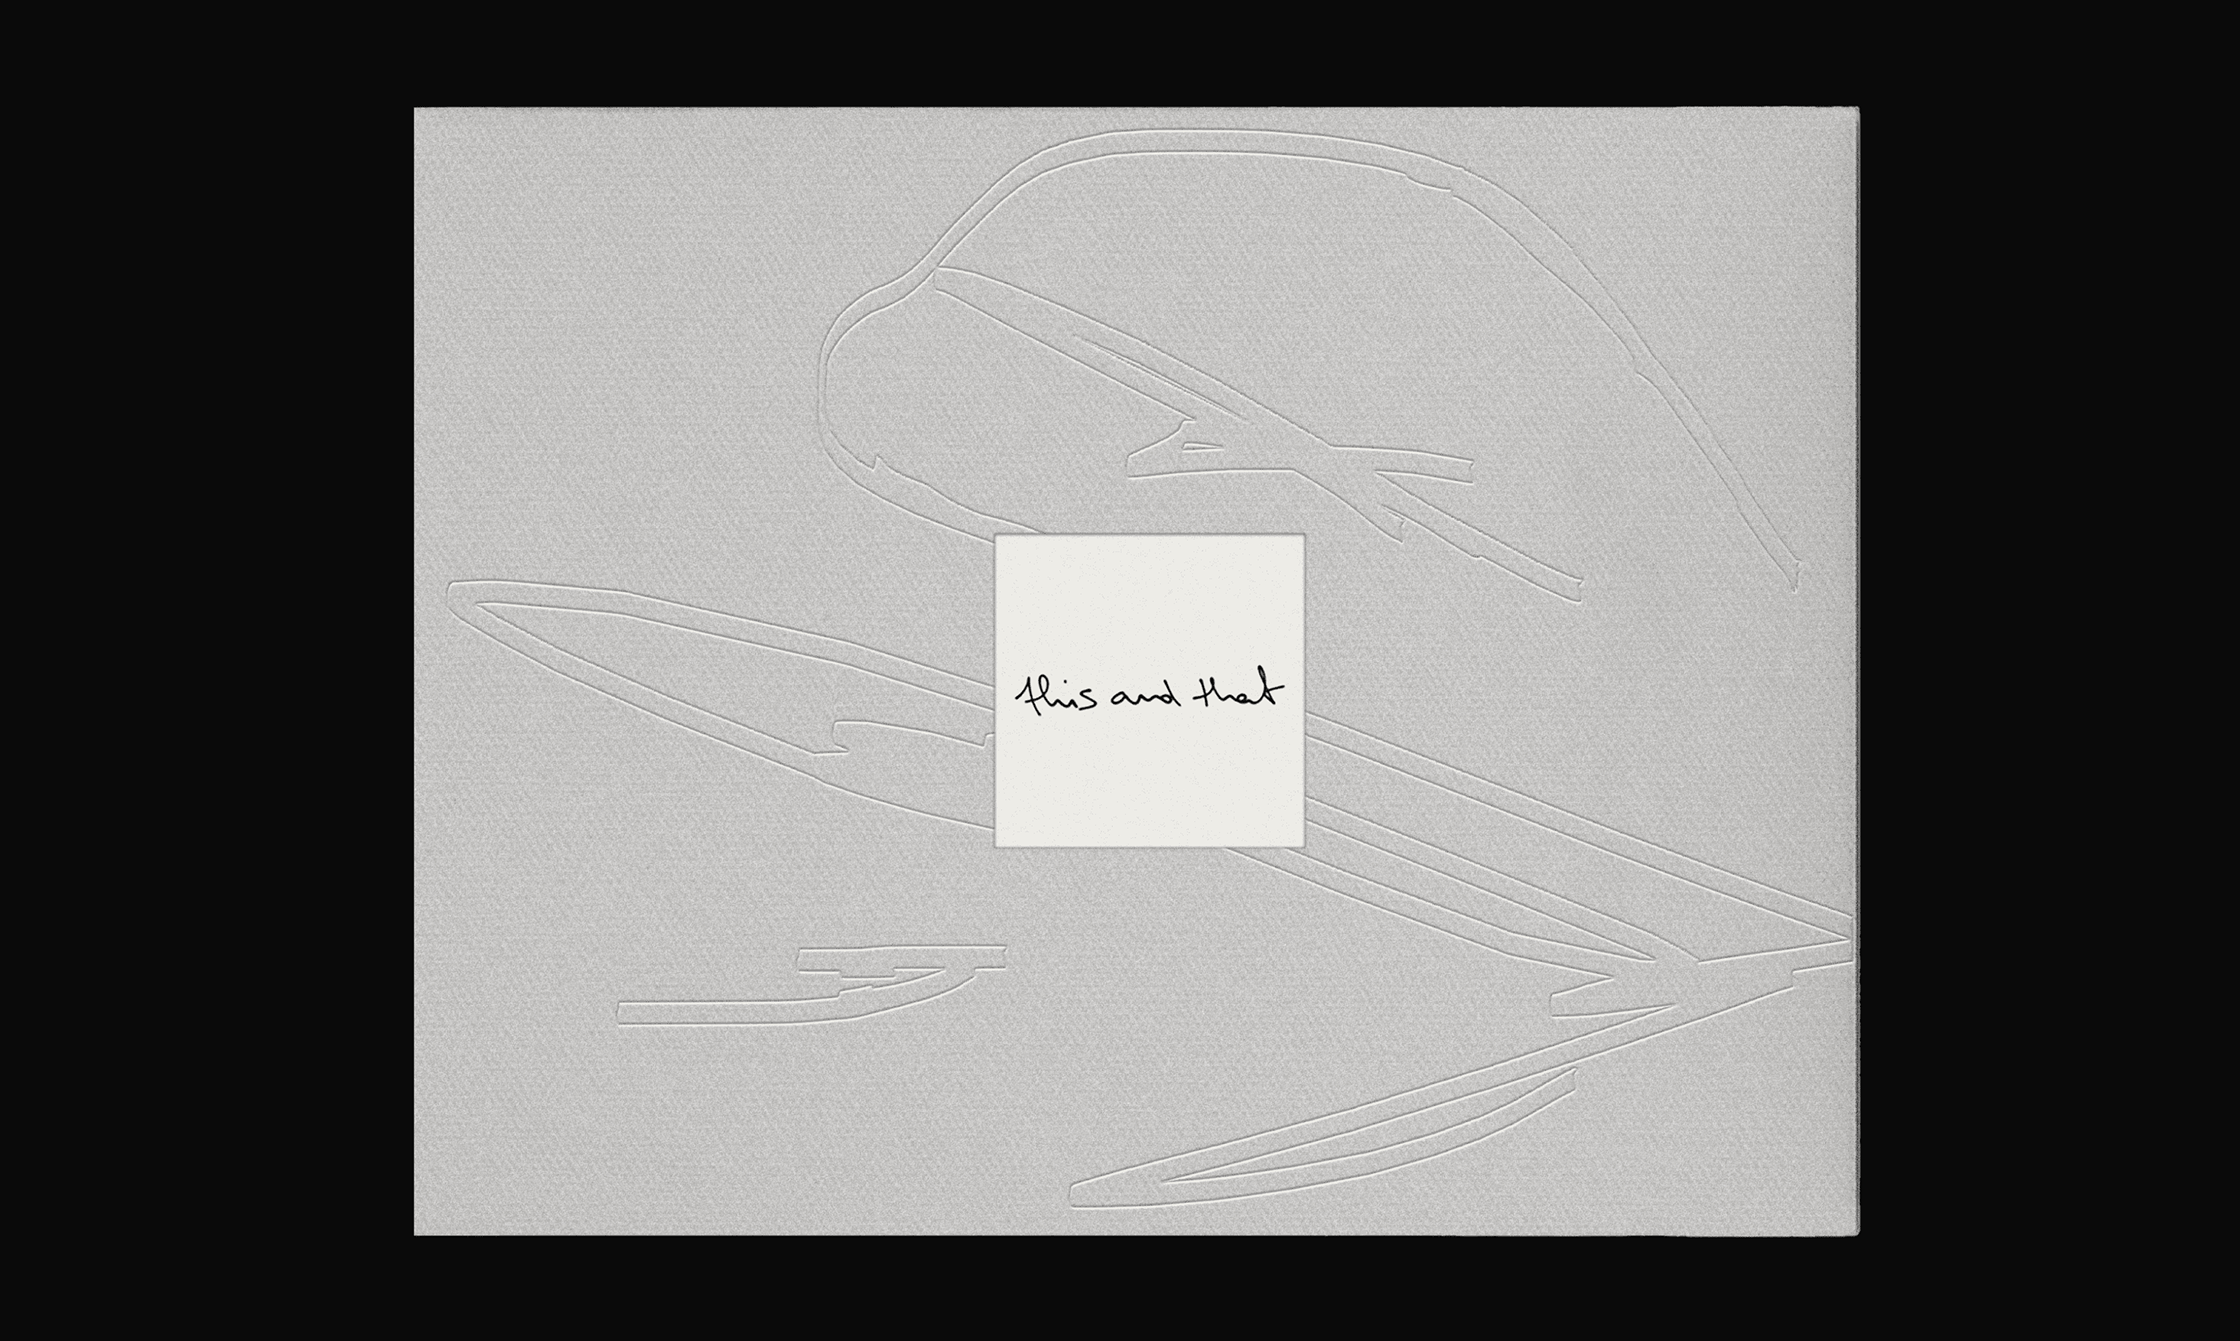 this and that